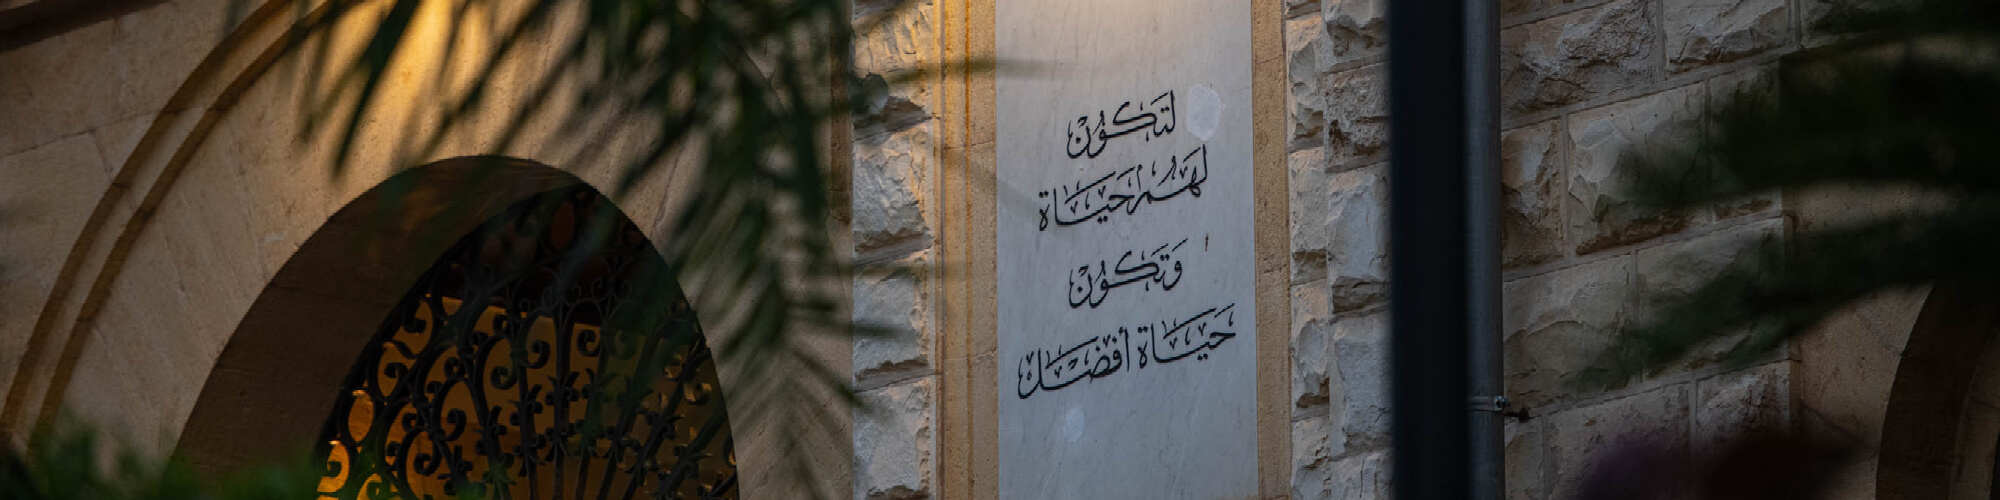 لتَكُون
لَهُم حَيَاة
وَتَكُون
حَيَاة أفضَل